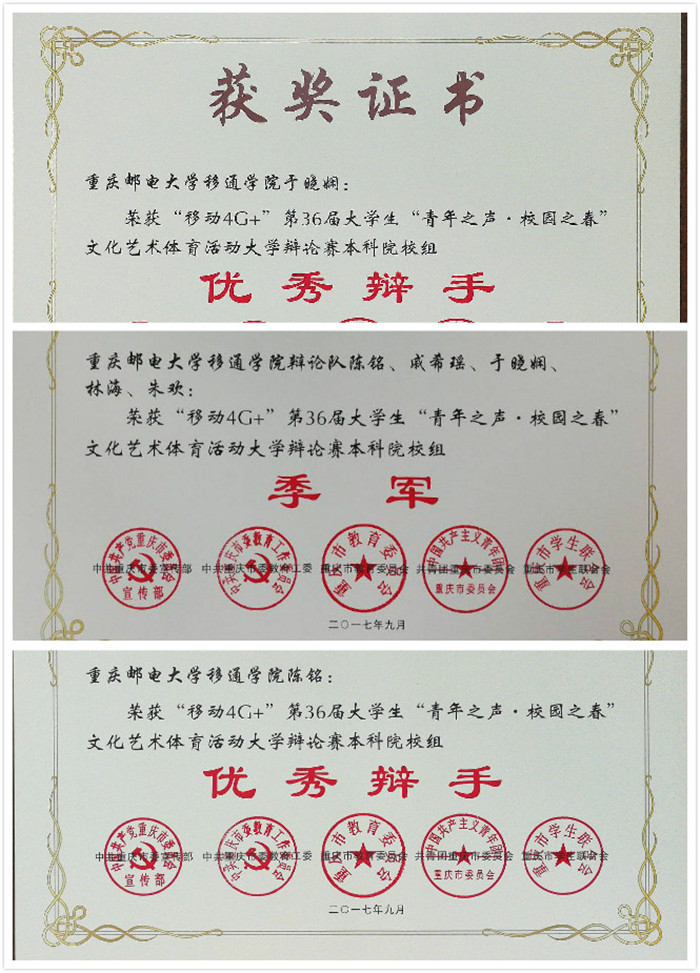 获奖证书
重庆邮电大学移通学院于晓娴：
荣获“移动4G+”第36届大学生“青年之声·校园之春”
文化艺术体育活动大学辩论赛本科院校组
优秀辩手
重庆邮电大学移通学院辩论队陈铭、戚希瑶、于晓娴、
林海、朱欢：
荣获“移动4G+”第36届大学生“青年之声·校园之春”
文化艺术体育活动大学辩论赛本科院校组
季军
中国共产党重庆市委员会
宣传部
中共重庆市委教育工作委员会
重庆市教育委员会
中国共产主义青年团
重庆市委员会
重庆市学生联合会
中共重庆市委宣传部 中共重庆市委教育工委 重庆市教育委员会 共青团重庆市委员会 重庆市学生联合会
二〇一七年九月
重庆邮电大学移通学院陈铭：
荣获“移动4G+”第36届大学生“青年之声·校园之春”
文化艺术体育活动大学辩论赛本科院校组
优秀辩手
中国共产党重庆市委员会
宣传部
中共重庆市委教育工作委员会
重庆市教育委员会
中国共产主义青年团
重庆市委员会
重庆市学生联合会
中共重庆市委宣传部 中共重庆市委教育工委 重庆市教育委员会 共青团重庆市委员会 重庆市学生联合会
二〇一七年九月